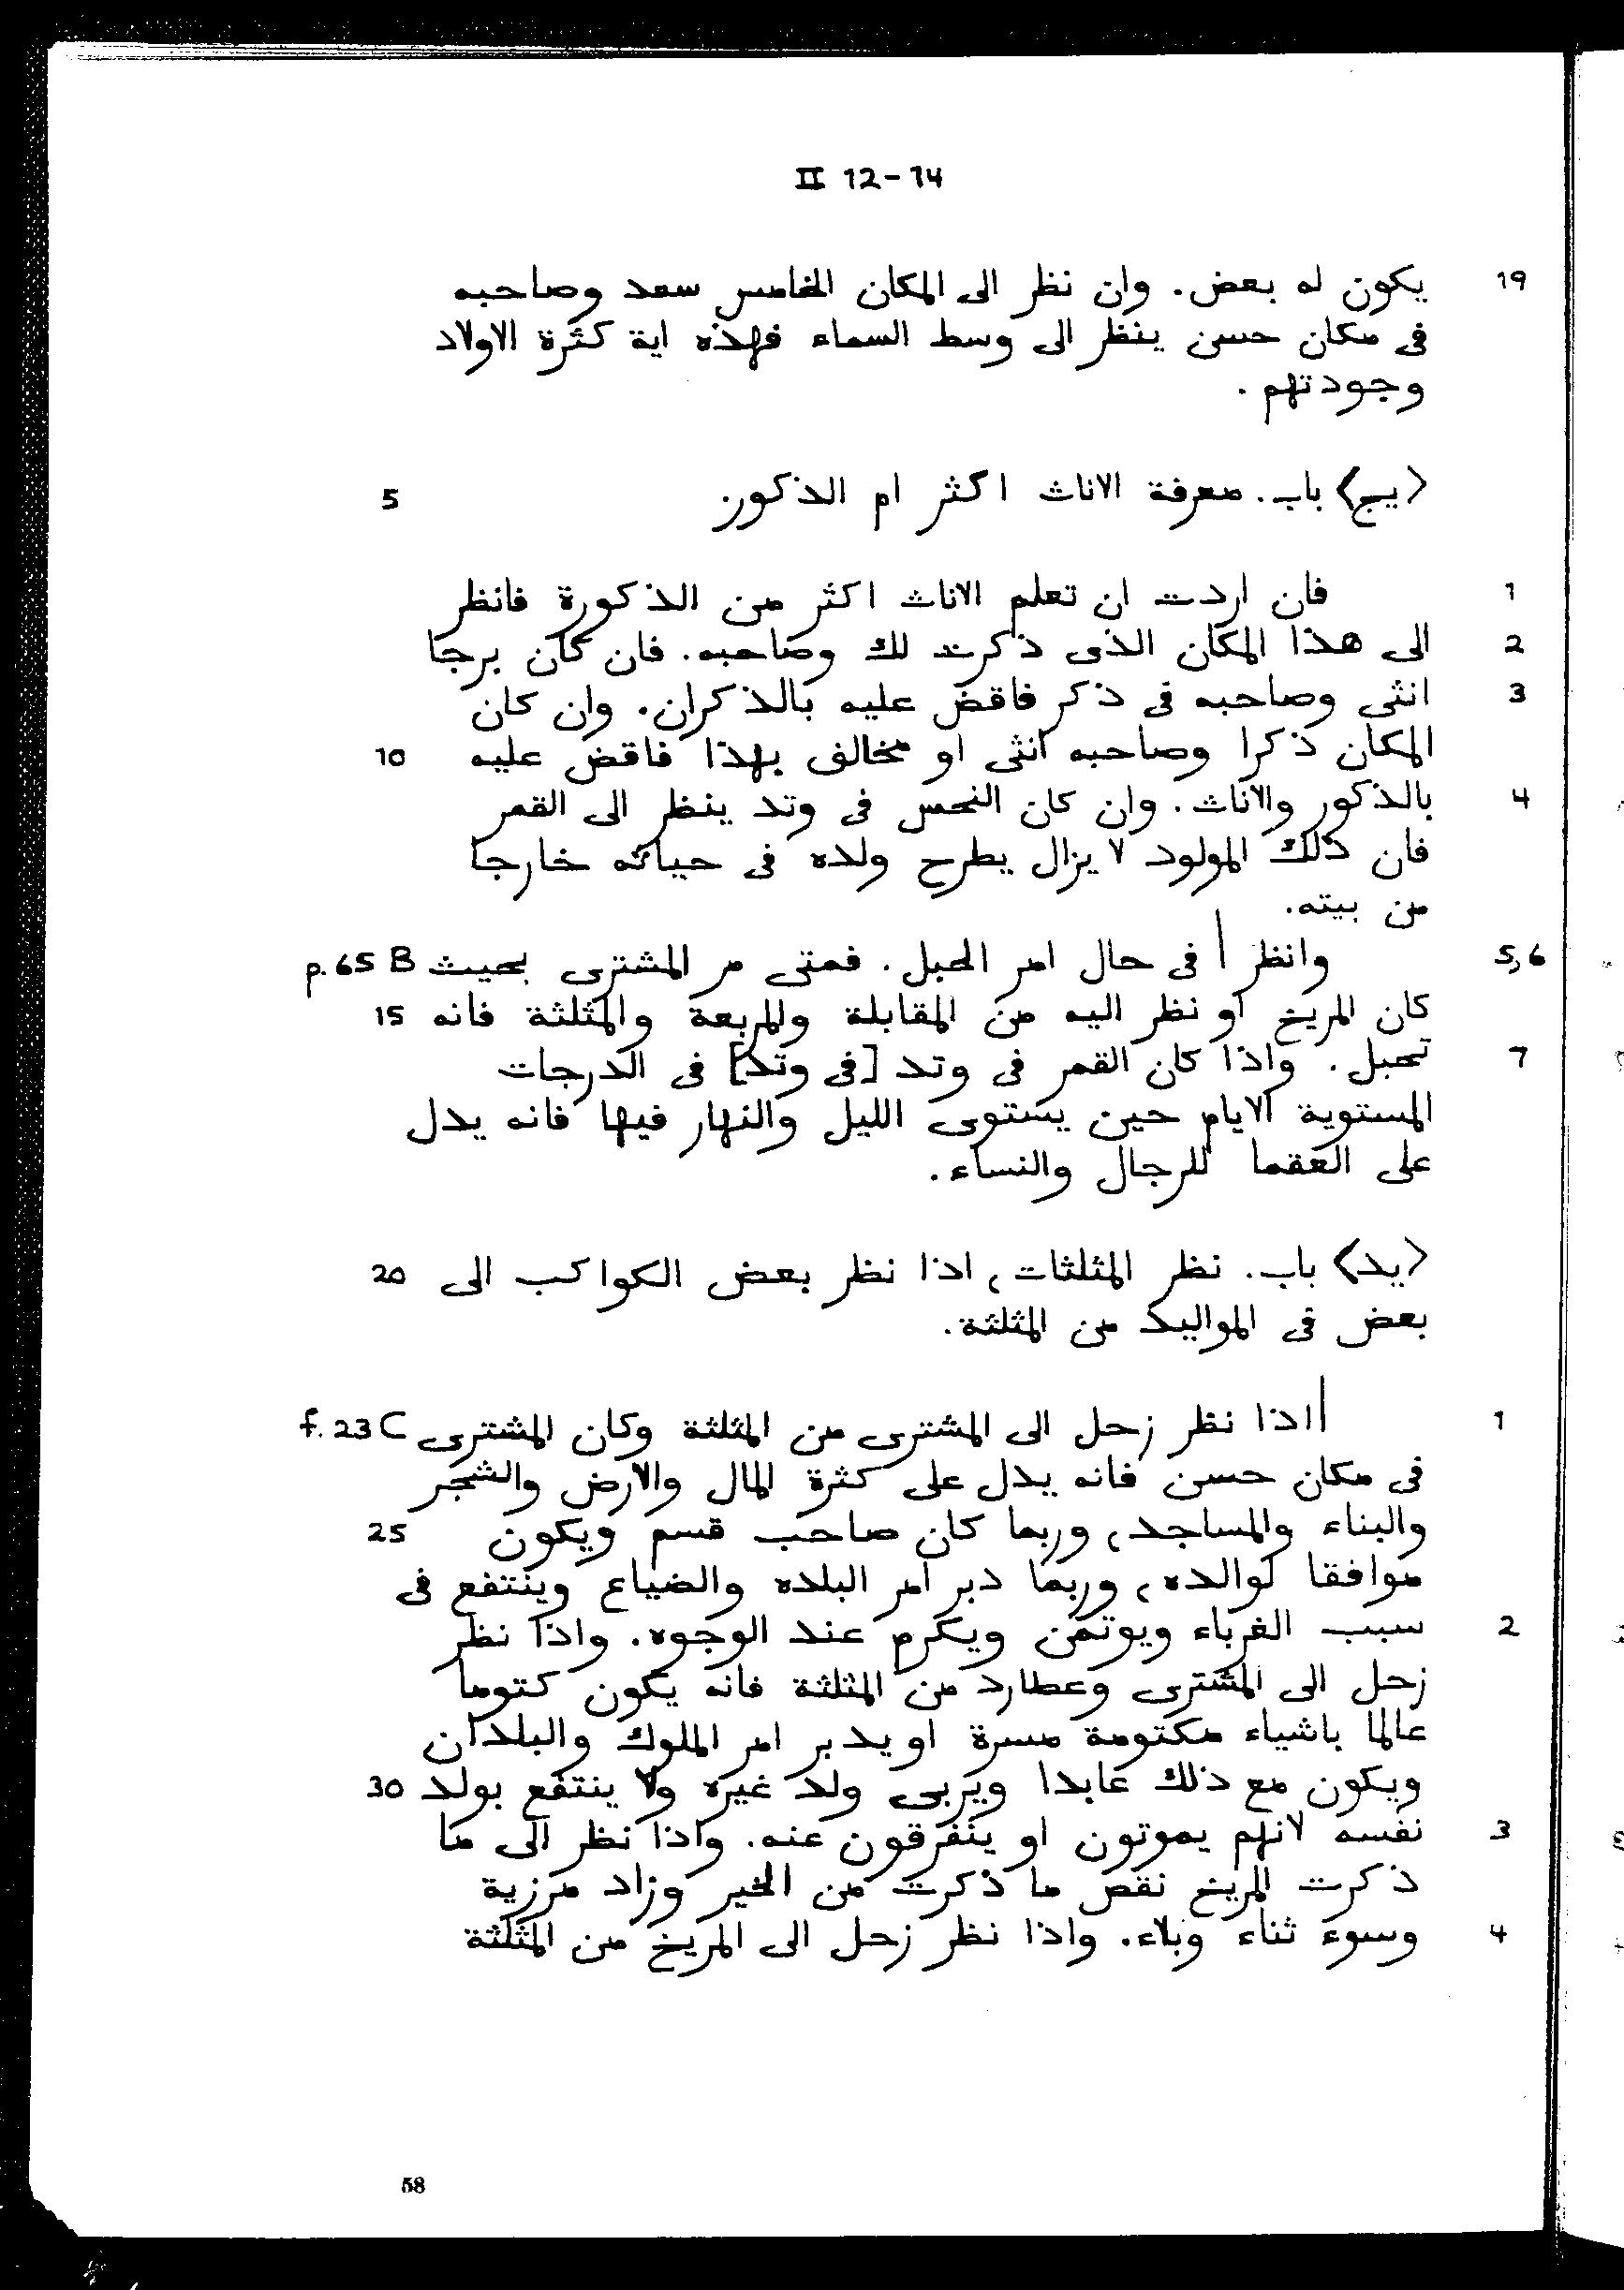 II 12-14
19 يكون له بعض. وان نظر الى المكان الخامس سعد وصاحبه
فى مكان حسن ينظر الى وسط السماء فهذه اية كثرة الاولاد
وجودتهم.
<يج> باب. معرفة الاناث اكثر ام الذكور. 5
1 فان اردت ان تعلم الاناث اكثر من الذكورة فانظر
2 الى هذا المكان الذى ذكرت لك وصاحبه. فان كان برجا
3 انثى وصاحبه فى ذكر فاقض عليه بالذكران. وان كان
المكان ذكرا وصاحبه انثى او مخالف بهذا فاقض عليه 10
4 بالذكور والاناث. وان كان النحس فى وتد ينظر الى القمر
فان ذلك المولود لا يزال يطرح ولده فى حياته خارجا
من بيته.
5,6 وانظر | فى حال امر الحبل. فمتى مر المشترى بحيث p.65 B
كان المريخ او نظر اليه من المقابلة والمربعة والمثلثة فانه 15
7 تحبل. واذا كان القمر فى وتد [فى وتد] فى الدرجات
المستوية الايام حين يستوى الليل والنهار فيها فانه يدل
على العقما للرجال والنساء.
<يد> باب. نظر المثلثات، اذا نظر بعض الكواكب الى 20
بعض فى المواليد من المثلثة.
1 |اذا نظر زحل الى المشترى من المثلثة وكان المشترى f.23 C
فى مكان حسن فانه يدل على كثرة المال والارض والشجر
والبناء والمساجد، وربما كان صاحب قسم ويكون 25
موافقا لوالده، وربما دبر امر البلده والضياع وينتفع فى
2 سبب الغرباء ويوتمن ويكرم عند الوجوه. واذا نظر
زحل الى المشترى وعطارد من المثلثة فانه يكون كتوما
عالما باشياء مكتومة مسرة او يدبر امر الملوك والبلدان
ويكون مع ذلك عابدا ويربى ولد غيره ولا ينتفع بولد 30
3 نفسه لانهم يموتون او يتفرقون عنه. واذا نظر الى ما
ذكرت المريخ نقص ما ذكرت من الخير وزاد مرزية
4 وسوء ثناء وبلاء. واذا نظر زحل الى المريخ من المثلثة
58